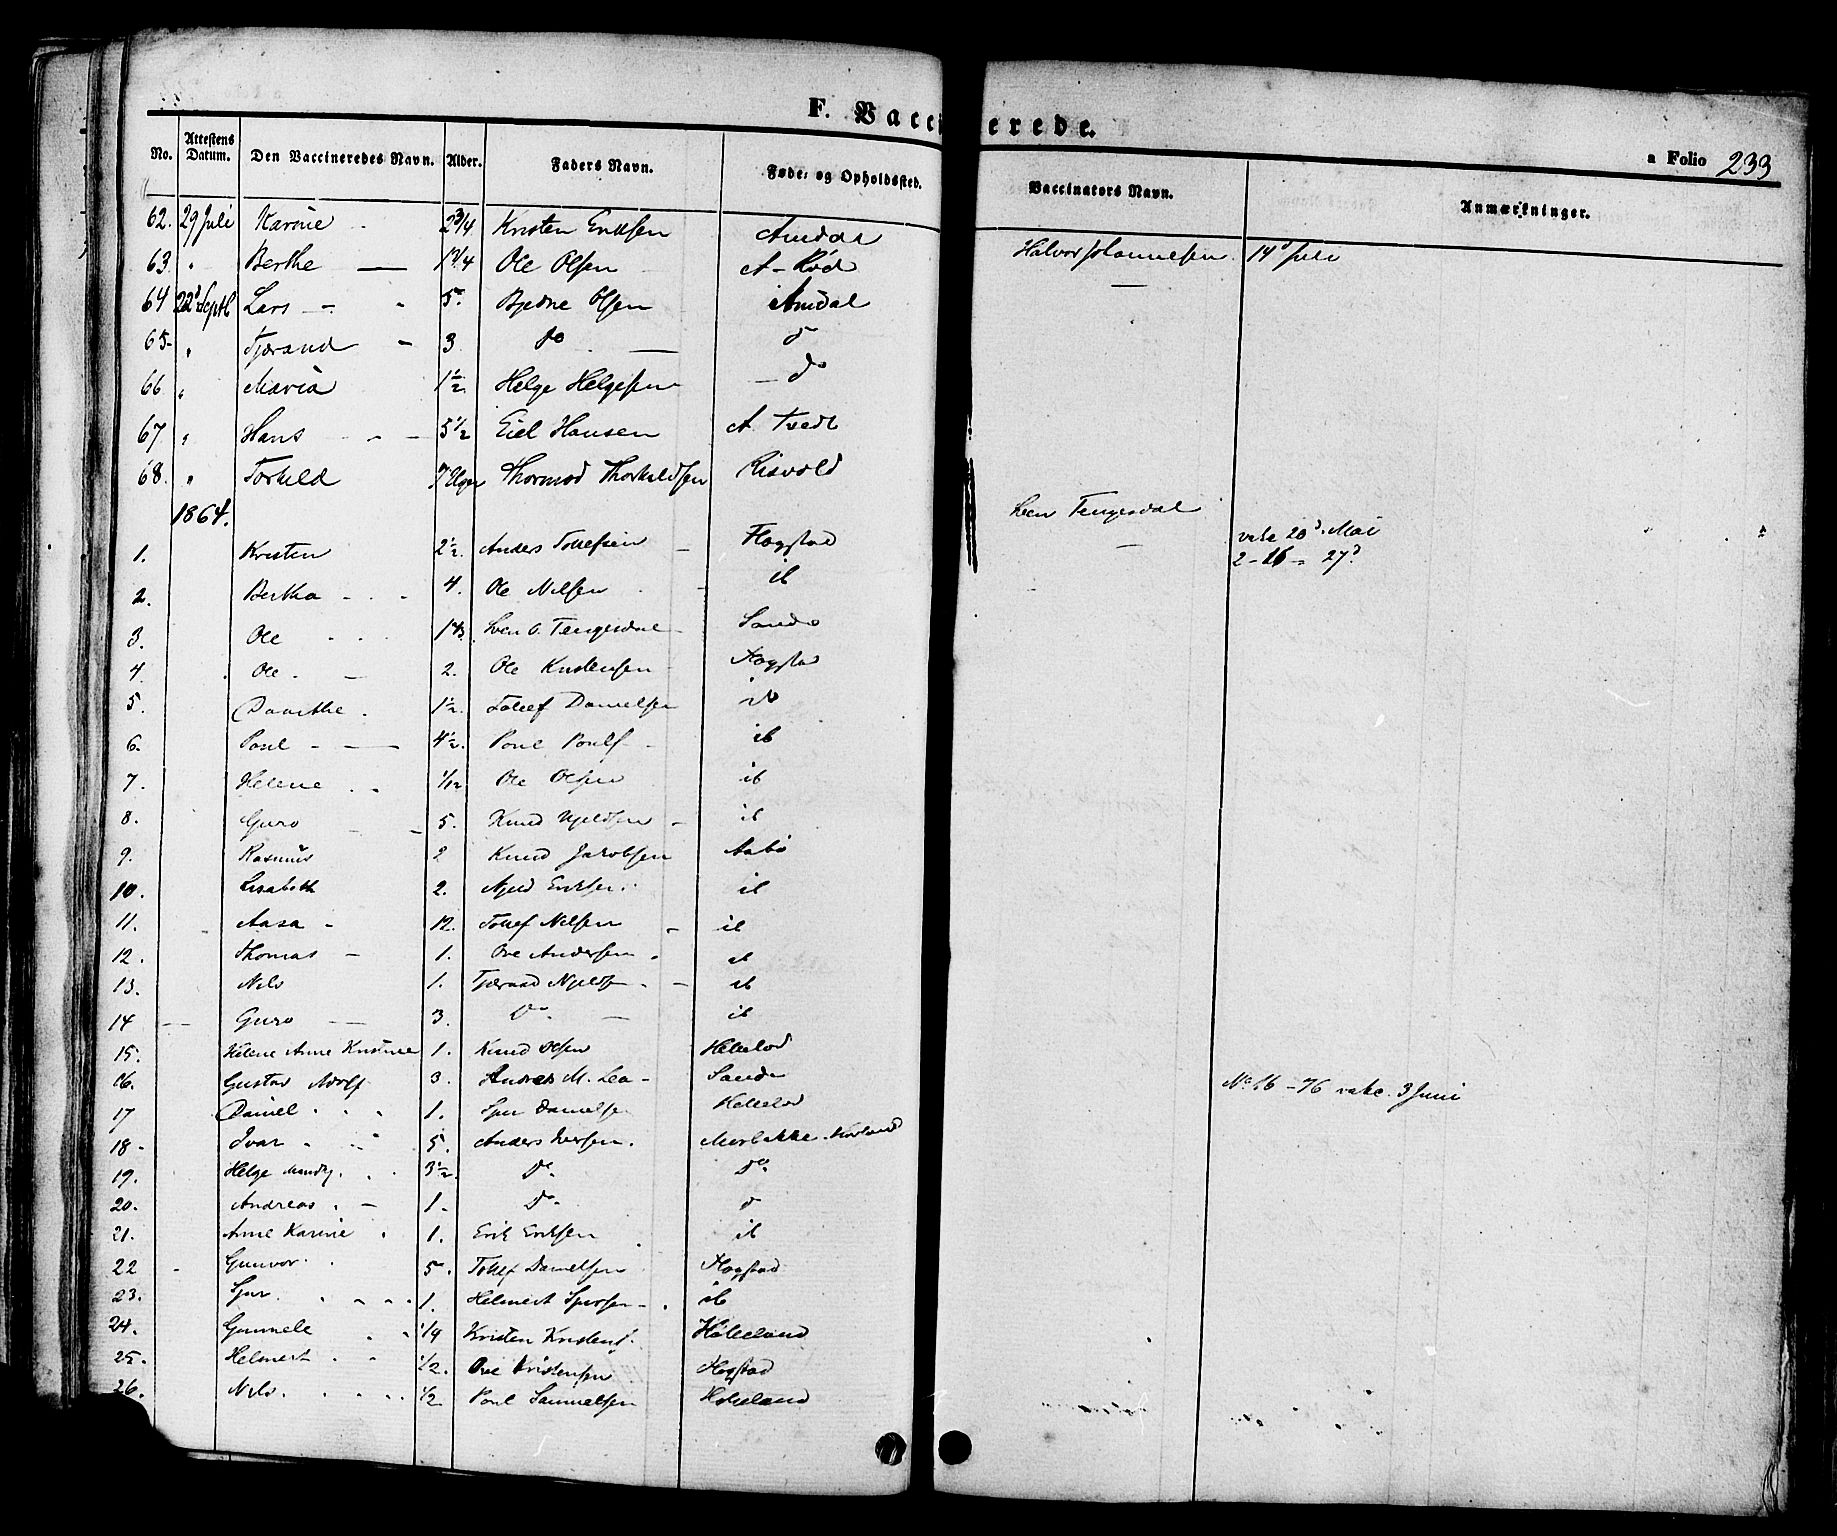 F. Vaccinerede.
a Folio 233
No. Attestens Datum. Den Vaccineredes Navn. Alder. Faders Navn. Føde- og Opholdssted. Vaccinators Navn. Anmærkninger.
62. 29 Juli Karine 2 3/4 Kristen Eriksen Amdal Halvor Johannesen 14d Juli
63. " Berthe — 1 1/4 Ole Olsen A-Rød —
64 22d Septb Lars — 5. Bjedne Olsen Amdal
65- " Tjærand - 3 do — d
66 " Maria 1 1/2 Helge Helgesen — do
67 " Hans 5 1/2 Eiel Hansen A. Tvedt
68. " Torkild 7 Uger Thormod Thorkildsen Risvold
1864. Sven Tengesdal
1. Kristen 2 1/2. Anders Tollefsen — Hogstad — vake 20d. Mai
2. Bertha - - - 4. Ole Nilsen ib 2-16 - 27d.
3. Ole 1 4/3 Sven O. Tengesdal Sande
4. Ole. — 2. Ole Kristensen Hogstad
5. Dorthe. 1 1/2. Tollef Danielsen ib
6. Poul - — 4 1/2. Poul Pouls ib
7. Helene 1/12 Ole Olsen ib
8. Guro 5. Knud Njeldsen - ib
9. Rasmus 2 Knud Jakobsen Aabø
10. Lisabeth 2. Njeld Eriksen. ib
11. Aasa - 12. Tollef Nilsen ib
12. Thomas — 1. Ove Andersen ib
13. Nils 1. Tjærand Njelds ib
14 — Guro — 3. Do. — ib
15. Helene Anne Kristine 1. Knud Olsen Hekelod
16. Gustav Adolf 3. Andreas M. Lea - Sande No 16 - 76 vake. 3 Juni
17 Daniel 1. Sjur Danielsen Hekelod
18 - Ivar 5. Anders Iversen.
19. Helge 3 1/2. Do. Do.
20. Andreas. — 1. Do. d
21. Anne Karine 1. Erik Eriksen ib
22 - Gunvor. 5. Tollef Danielsen Hogstad
23. Sjur. 1. Helmert Sjursen - ib
24. Gunnele 1/4 Kristen Kristens. Hekeland
25. Helmert 1/2. Ove Kristensen Hogstad
26. Nils. 1/2 Poul Samuelsen Hekeland